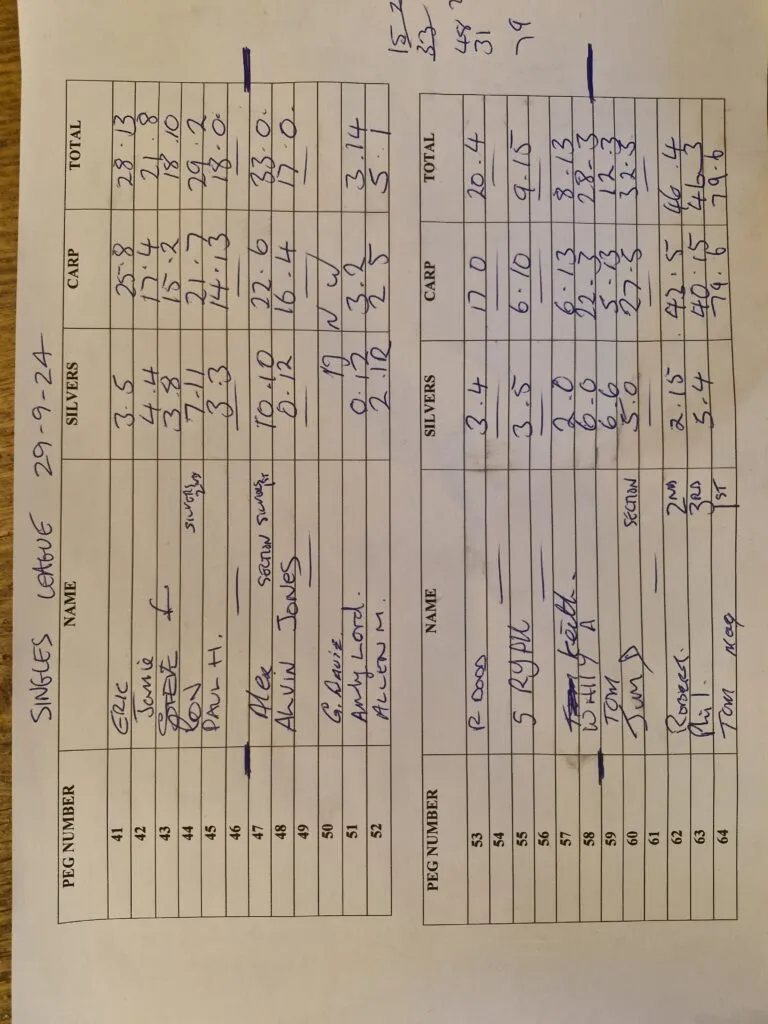 SINGLES LEAGUE 29-9-24
PEG NUMBER NAME SILVERS CARP TOTAL
41 ERIC 3.5 25.8 28.13
42 Jamie 4.4 17.4 21.8
43 STEVE 3.8 15.2 18.10
44 KEV SILVERS 7.11 21.7 29.2
45 PAUL H. 3.3 14.13 18.0
46 — — —
47 Alex SECTION SILVERS 10.10 22.6 33.0.
48 ALVIN JONES 0.12 16.4 17.0.
49 — — — —
50 G. Davis D N W
51 Andy Lord. 0.12 3.2 3.14
52 ALLEN M. 2.12 2 5 5.1
PEG NUMBER NAME SILVERS CARP TOTAL
53 R DODD 3.4 17 0 20.4
54 — — — —
55 S RYAN 3.5 6.10 9.15
56 — — — —
57 Keith. 2.0 6.13 8.13
58 WHITTY A 6.0 22.3 28.3
59 TOM 6.6 5.13 12.3
60 Jim D SECTION 5.0 27.5 32.5
61 — — — —
62 Robert. 2ND 2.15 42.5 46.4
63 Phil. 3RD 5.4 40.15 46.3
64 Tom Mag 1ST 79.6 79.6
15 2
33
48
31
79